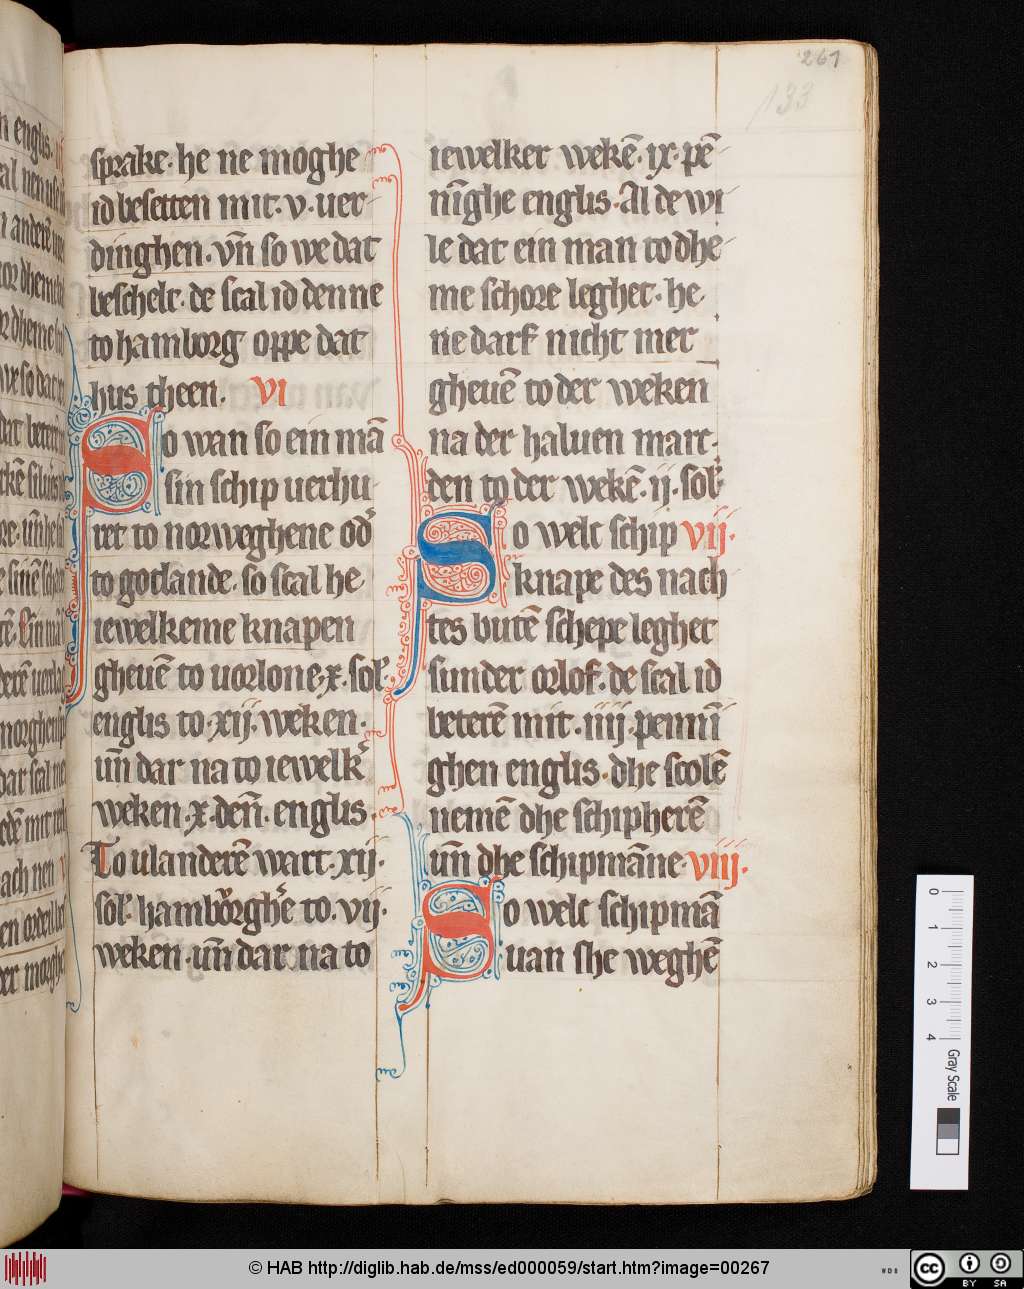 261
133
sprake · he ne moghe
id besetten mit · v · uer
dinghen · vn̄ so we dat
beschelt · de scal id denne
to hamborg oppe dat
hus theen · VI
So wan so ein mā
sin schip uerhu
ret to norweghene od'
to gotlande · so scal he
iewelkeme knapen
gheuē to uorlone · x · sol'
englis to · xij · weken ·
un̄ dar na to iewelk'
weken · x · den̄ · englis ·
To ulanderē wart · xij ·
sol' · hamborgh'e to · vij ·
weken · un̄ dar na to
iewelker wekē · ix · pē
nīghe englis · Al de wi
le dat ein man to dhe
me schore leghet · he
ne darf nicht mer
gheuē to der weken
na der haluen mart
den to der wekē · ij · sol'
So welc schip vij ·
knape des nach
tes butē schepe leghet
sunder orlof · de scal id
beterē mit · iiij · pennī
ghen englis · dhe scolē
nemē dhe schipherē
un̄ dhe schipmāne · viij ·
So welc schipmā
uan she weghē
0
1
2
3
4
Gray Scale
© HAB http://diglib.hab.de/mss/ed000059/start.htm?image=00267
WDB
cc BY SA